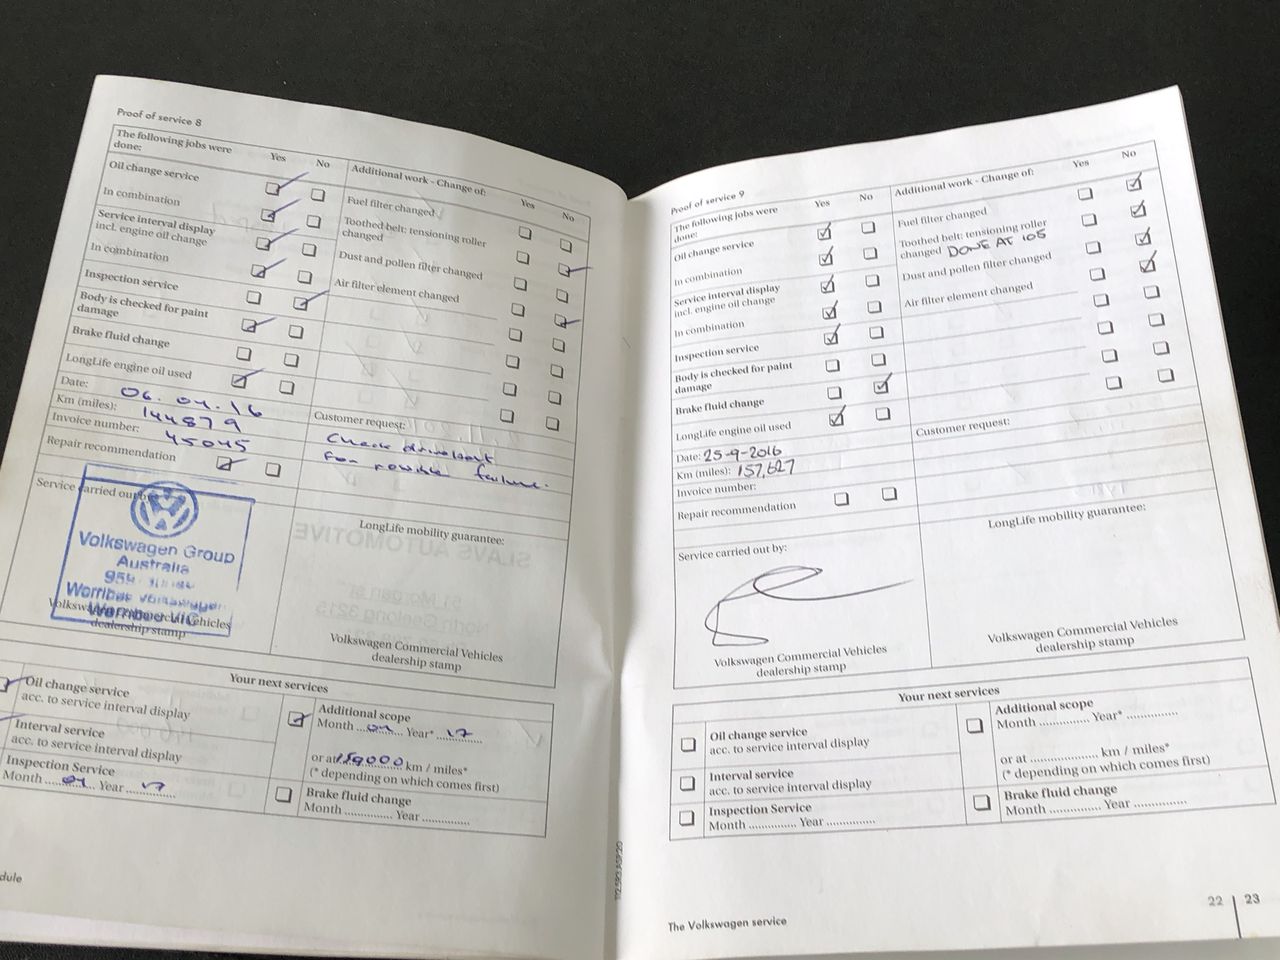 Proof of service 8
The following jobs were
done:
Yes
No
Additional work - Change of:
Yes
No
Oil change service
In combination
Service interval display
incl. engine oil change
In combination
Inspection service
Body is checked for paint
damage
Brake fluid change
LongLife engine oil used
Fuel filter changed
Toothed belt: tensioning roller
changed
Dust and pollen filter changed
Air filter element changed
Date: 06.04.16
Km (miles): 144879
Invoice number: 45045
Repair recommendation
Customer request:
Check
for possible failure.
Service carried out by:
Volkswagen Group
Australia
Werribee Volkswagen
Werribee VIC
Volkswagen Commercial Vehicles
dealership stamp
LongLife mobility guarantee:
Volkswagen Commercial Vehicles
dealership stamp
Your next services
Oil change service
acc. to service interval display
Interval service
acc. to service interval display
Inspection Service
Month 04 Year 17
Additional scope
Month 04 Year* 17
or at 159000 km / miles*
(* depending on which comes first)
Brake fluid change
Month .............. Year ..............
dule
Proof of service 9
The following jobs were
done:
Yes
No
Additional work - Change of:
Yes
No
Oil change service
In combination
Service interval display
incl. engine oil change
In combination
Inspection service
Body is checked for paint
damage
Brake fluid change
LongLife engine oil used
Fuel filter changed
Toothed belt: tensioning roller
changed DONE AT 105
Dust and pollen filter changed
Air filter element changed
Date: 25-9-2016
Km (miles): 157,627
Invoice number:
Repair recommendation
Customer request:
Service carried out by:
Volkswagen Commercial Vehicles
dealership stamp
LongLife mobility guarantee:
Volkswagen Commercial Vehicles
dealership stamp
Your next services
Oil change service
acc. to service interval display
Interval service
acc. to service interval display
Inspection Service
Month .............. Year ..............
Additional scope
Month .............. Year* ..............
or at .................... km / miles*
(* depending on which comes first)
Brake fluid change
Month .............. Year ..............
The Volkswagen service
22 | 23